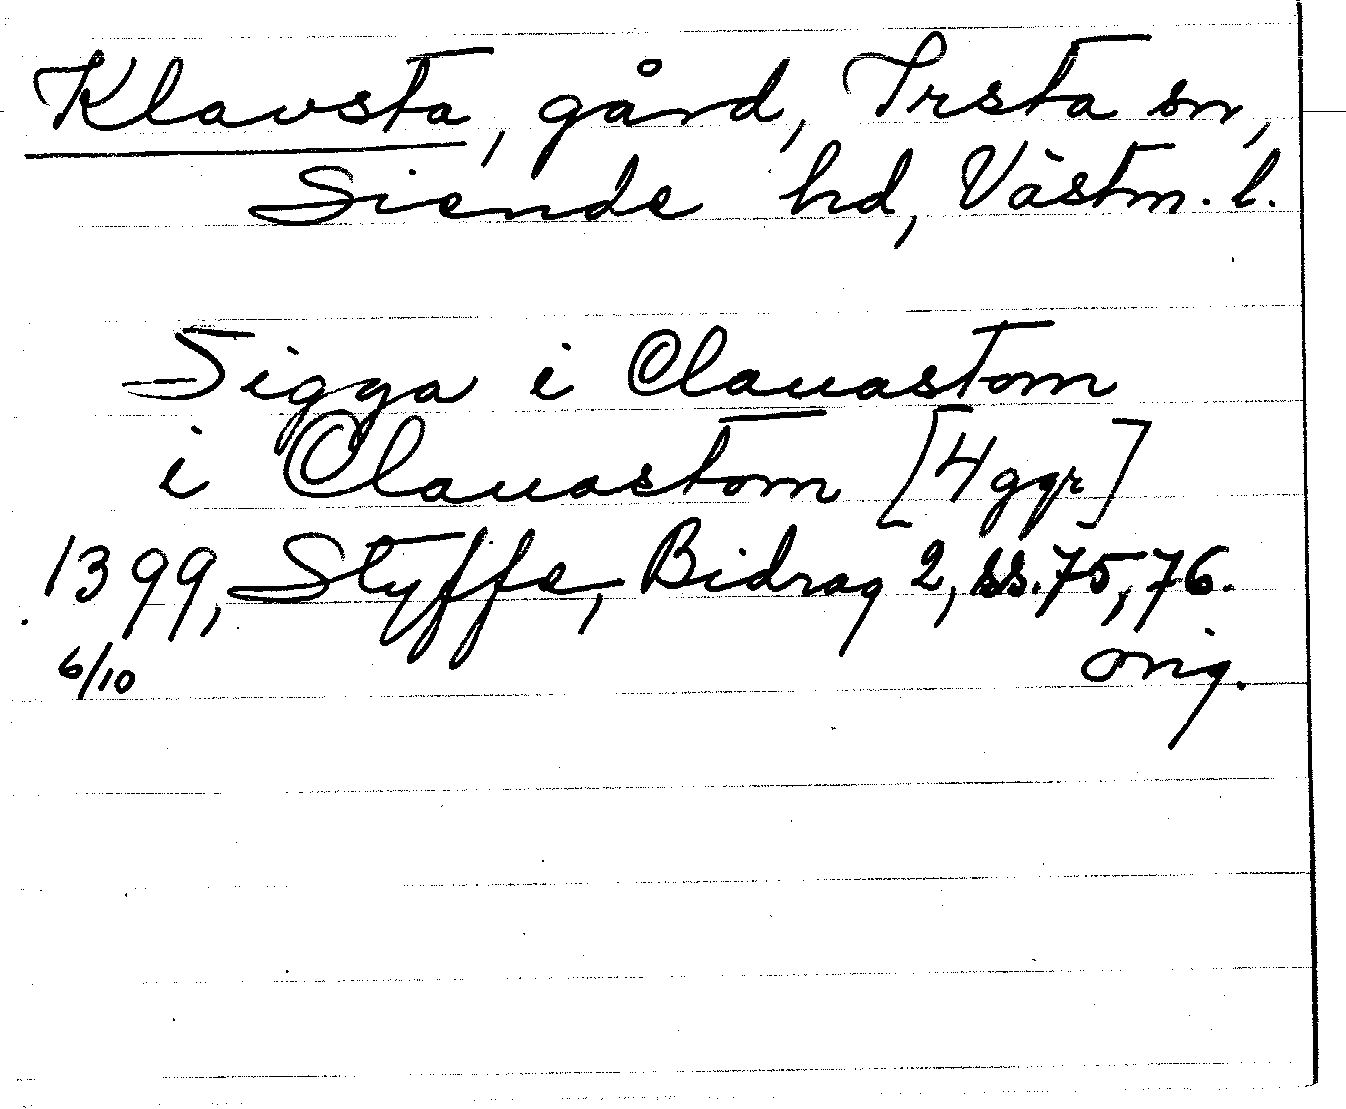 Klavsta, gård, Irsta sn,
Siende hd, Västm. l.
Sigga i Clauastom
i Clauastom [4 ggr]
1399, Styffe, Bidrag 2, ss. 75, 76.
6/10 orig.